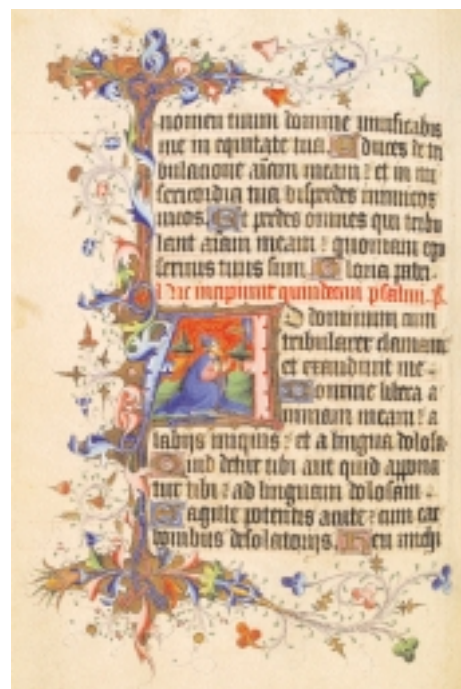 nomen tuum domine viuificabis
me in equitate tua. Educes de tri
bulacione aīam meam : et in mi
sericordia tua disperdes inimicos
meos. Et perdes omnes qui tribu
lant aīam meam : quoniam ego
seruus tuus sum. Gloria patri.
Hic incipiunt quindecim psalmi. ps.
A
D dominum cum
tribularer clamaui
et exaudiuit me.
Domine libera a
nimam meam : a
labijs iniquis : et a lingua dolosa.
Quid detur tibi aut quid appona
tur tibi : ad linguam dolosam.
Sagitte potentis acute : cum car
bonibus desolatorijs. Heu michi